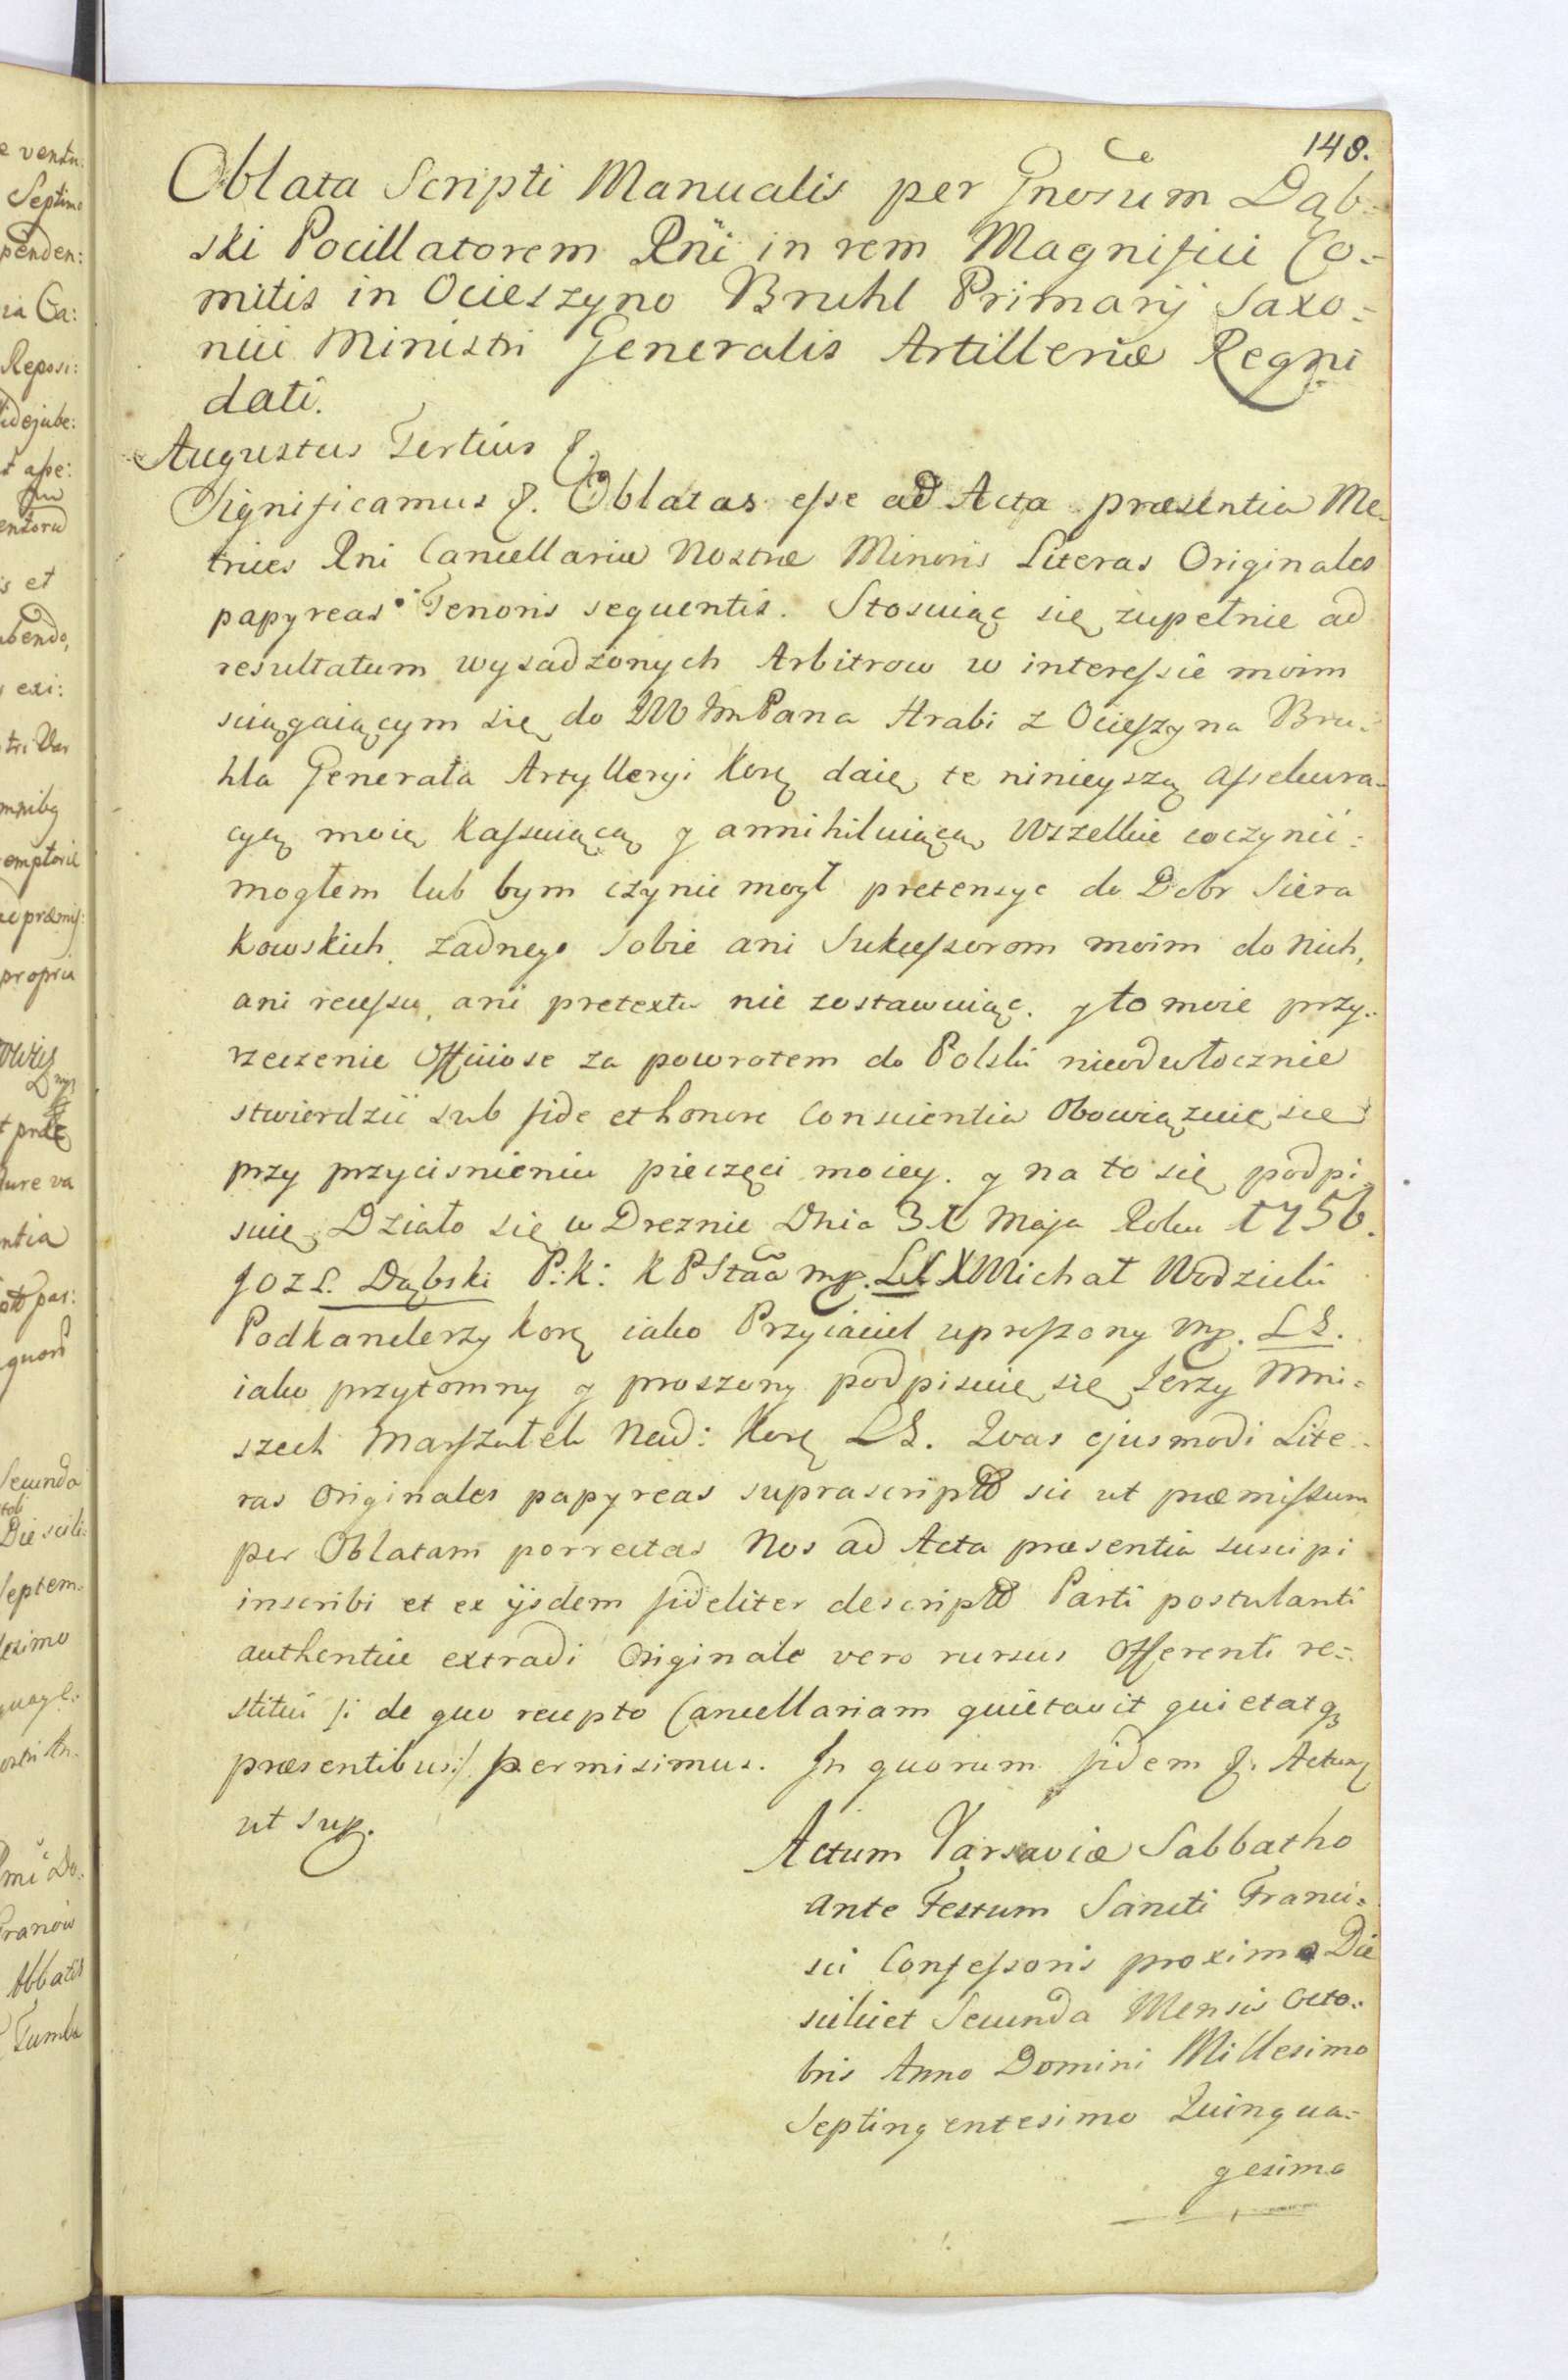 148.
Oblata Scripti Manualis per Gnerosum Dąb=
ski Pocillatorem Rni in rem Magnifici Co=
mitis in Ocieszyno Bruhl Primarij Saxo=
nici Ministri Generalis Artilleriæ Regni
dati.
Augustus Tertius &.
Significamus &. Oblatas esse ad Acta præsentia Me=
trices Rni Cancellariæ Nostræ Minoris Literas Originales
papyreas Tenoris sequentis. Stosuiąc się zupełnie ad
resultatum wysadzonych Arbitrow w interessie moim
sciągaiącym się do JW Im Pana Hrabi z Ocieszyna Bru=
hla Generała Artylleryi Korę daię te ninieyszą assekura=
cyą moię kassuiącą y annihiluiącą wszelkie coczynić=
mogłem lub bym czynic mogł pretensye do Dobr Siera
kowskich, żadnego sobie ani Sukcessorom moim do nich,
ani recessu, ani pretextu nie zostawuiąc. y to moie przy=
rzeczenie Officiose za powrotem do Polski nieodwłocznie
stwierdzić sub fide et honore Conscientia Obowiązuię się
przy przycisnieniu pieczęci moiey. y na to się podpi
suię. Działo się w Dreznie Dnia 31 Maja Roku 1756.
Joz L. Dąbski P: K: K P Staa mp. LS X Michał Wodzicki
Podkanclerzy Korę iako Przyiaciel uproszony mp. LS.
iako przytomny y proszony podpisuię się Jerzy Mni=
szech Marszałek Nad: Korę LS. Quas ejusmodi Lite=
ras Originales papyreas suprascriptas sic ut præmissum
per Oblatam porrectas Nos ad Acta præsentia suscipi
inscribi et ex ijsdem fideliter descriptas Parti postulanti
authentice extradi Originale vero rursus Offerenti re=
stitui /: de quo recepto Cancellariam quietavit quietatq
præsentibus :/ permisimus. In quorum fidem &. Actum
ut sup.
Actum Varsaviæ Sabbatho
ante Festum Sancti Franci=
sci Confessoris proximo Die
scilicet Secunda Mensis Octo=
bris Anno Domini Millesimo
Septingentesimo Quinqua=
gesimo